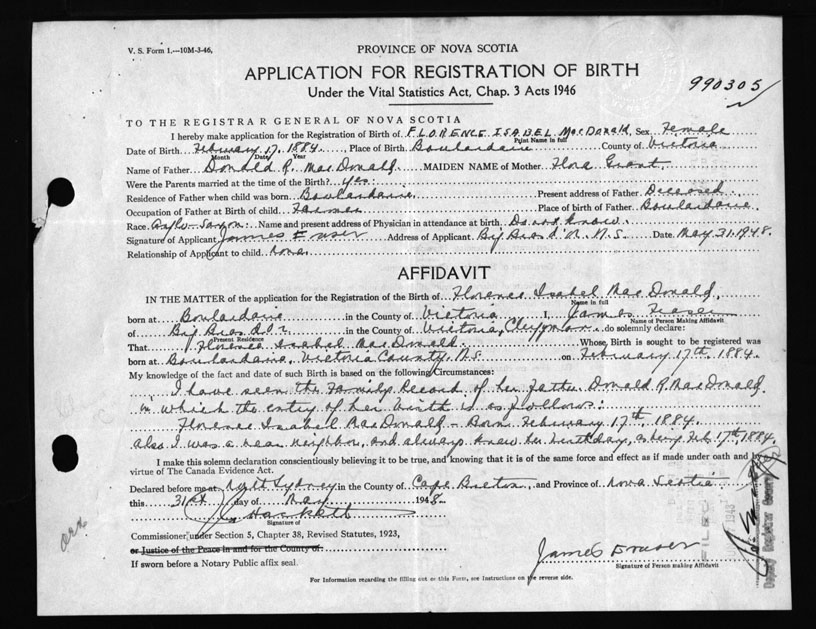 V. S. Form 1.—10M-3-46,
PROVINCE OF NOVA SCOTIA
APPLICATION FOR REGISTRATION OF BIRTH
Under the Vital Statistics Act, Chap. 3 Acts 1946
990305
TO THE REGISTRAR GENERAL OF NOVA SCOTIA
I hereby make application for the Registration of Birth of FLORENCE ISABEL MacDonald, Sex Female
Print Name in full
Date of Birth February 17, 1884, Place of Birth Boulardarie County of Victoria
Month Date Year
Name of Father Donald R. MacDonald MAIDEN NAME of Mother Flora Grant
Were the Parents married at the time of the Birth? Yes.
Residence of Father when child was born Boulardarie Present address of Father Deceased
Occupation of Father at Birth of child Farmer Place of birth of Father Boulardarie
Race Anglo-Saxon: Name and present address of Physician in attendance at birth Do not know.
Signature of Applicant James Fraser Address of Applicant Big Bras d'Or N.S. Date May 31. 1948.
Relationship of Applicant to child none
AFFIDAVIT
IN THE MATTER of the application for the Registration of the Birth of Florence Isabel MacDonald,
Name in full
born at Boulardarie in the County of Victoria I, James Fraser
Name of Person Making Affidavit
of Big Bras d'Or in the County of Victoria, Clergyman do solemnly declare:
Present Residence
That Florence Isabel MacDonald Whose Birth is sought to be registered was
born at Boulardarie, Victoria County, N.S. on February 17th, 1884.
My knowledge of the fact and date of such Birth is based on the following Circumstances:
I have seen the Family Record of her father Donald R. MacDonald
in which the entry of her birth is as follows:
Florence Isabel MacDonald - Born February 17th, 1884.
also I was a near neighbor, and always knew her birthday, as being Feb. 17th, 1884.
I make this solemn declaration conscientiously believing it to be true, and knowing that it is of the same force and effect as if made under oath and by
virtue of The Canada Evidence Act.
Declared before me at North Sydney in the County of Cape Breton, and Province of Nova Scotia
this 31st day of May 1948.
Hackett
Signature of
Commissioner under Section 5, Chapter 38, Revised Statutes, 1923,
or Justice of the Peace in and for the County of:
If sworn before a Notary Public affix seal.
James Fraser
Signature of Person making Affidavit
For Information regarding the filling out of this Form, see Instructions on the reverse side.
FILED
Deputy Registrar General